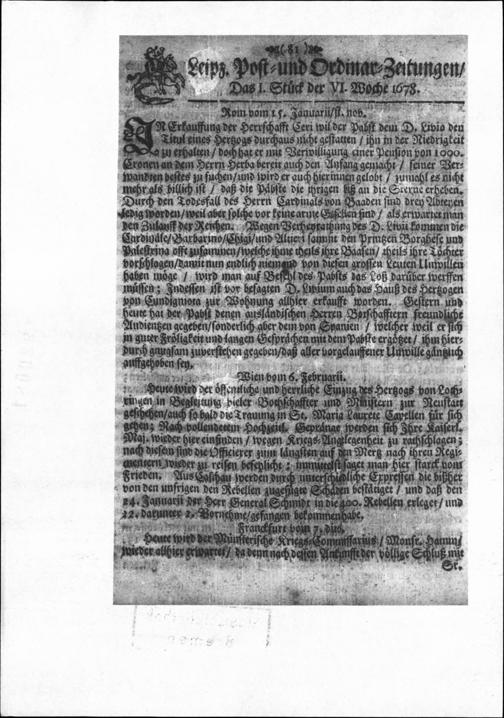 ( 81 )
Leipz. Post- und Ordinar-Zeitungen/
Das I. Stück der VI. Woche 1678.
Rom vom 15. Januarii/st. nov.
IN Erkauffung der Herrschafft Ceri wil der Pabst dem D. Livio den
Titul eines Hertzogs durchaus nicht gestatten / ihn in der Niedrigkeit
zu erhalten / doch hat er mit Verwilligung einer Pension von 1000.
Cronen an dem Herrn bereit auch den Anfang gemacht / seiner Ver-
wandten bestes zu suchen/und wird er auch hierinnen gelobt / zumahl es nicht
mehr als billich ist / daß die Päbste die ihrigen biß an die Sterne erheben.
Durch den Todesfall des Herrn Cardinals von Baaden sind drey Abteyen
ledig worden / weil aber solche vor keine arme Gesellen sind / als erwartet man
den Zulauff der Reichen. Wegen Verheyrathung des D. Livii kommen die
Cardinäle/Barbarino/Chigi/und Altieri sammt den Printzen Borghese und
Palestrina offt zusammen/welche ihme theils ihre Baasen/theils ihre Töchter
vorschlagen/damit nun endlich niemand von diesen grossen Leuten Unwillen
haben möge / wird man auf Befehl des Pabsts das Loß darüber werffen
müssen; Indessen ist vor besagten D. Livium auch das Hauß des Hertzogen
von zur Wohnung allhier erkaufft worden. Gestern und
heute hat der Pabst denen ausländischen Herren Botschafftern freundliche
Audientzen gegeben/sonderlich aber dem von Spanien / welcher weil er sich
in guter Fröligkeit und langen Gesprächen mit dem Pabste ergötzet / ihm hier-
durch gnugsam zuverstehen gegeben/daß aller vorgelauffener Unwille gäntzlich
auffgehoben sey.
Wien vom 6. Februarii.
Heute wird der öffentliche und herrliche Einzug des Hertzogs von Loth-
ringen in Begleitung vieler Bothschaffter und Ministern zur Neustatt
geschehen/auch so bald die Trauung in St. Maria Laurete Capellen für sich
gehen; Nach vollendetem Hochzeit. Gepränge werden sich Ihre Käiserl.
Maj. wieder hier einfinden / wegen Kriegs-Anglegenheit zu rathschlagen;
nach diesen sind die Officierer zum längsten auf den Mertz nach ihren Regi-
mentern wieder zu reisen befehlicht; immittelst saget man hier starck vom
Frieden. Aus Caschau werden durch unterschiedliche Expressen die bißher
von den unsrigen den Rebellen zugefügte Schäden bestätiget / und daß den
24. Januarii der Herr General Schmidt in die 400. Rebellen erleget / und
22. darunter 2. Vornehme/gefangen bekommen habe.
Franckfurt vom 7. dito.
Heute wird der Münsterische Kriegs-Commissarius / Monsr. Hamm/
wieder allhier erwartet / da denn nach dessen Ankunfft der völlige Schluß mit
Sr.